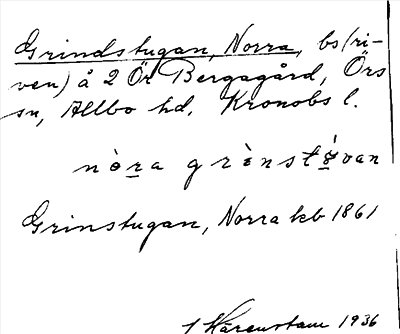 Grindstugan, Norra, bs(ri-
ven) å 2 Ör Bergagård, Örs
sn, Allbo hd. Kronobs l.
nòra grènstǿvan
Grinstugan, Norra kb 1861
1936